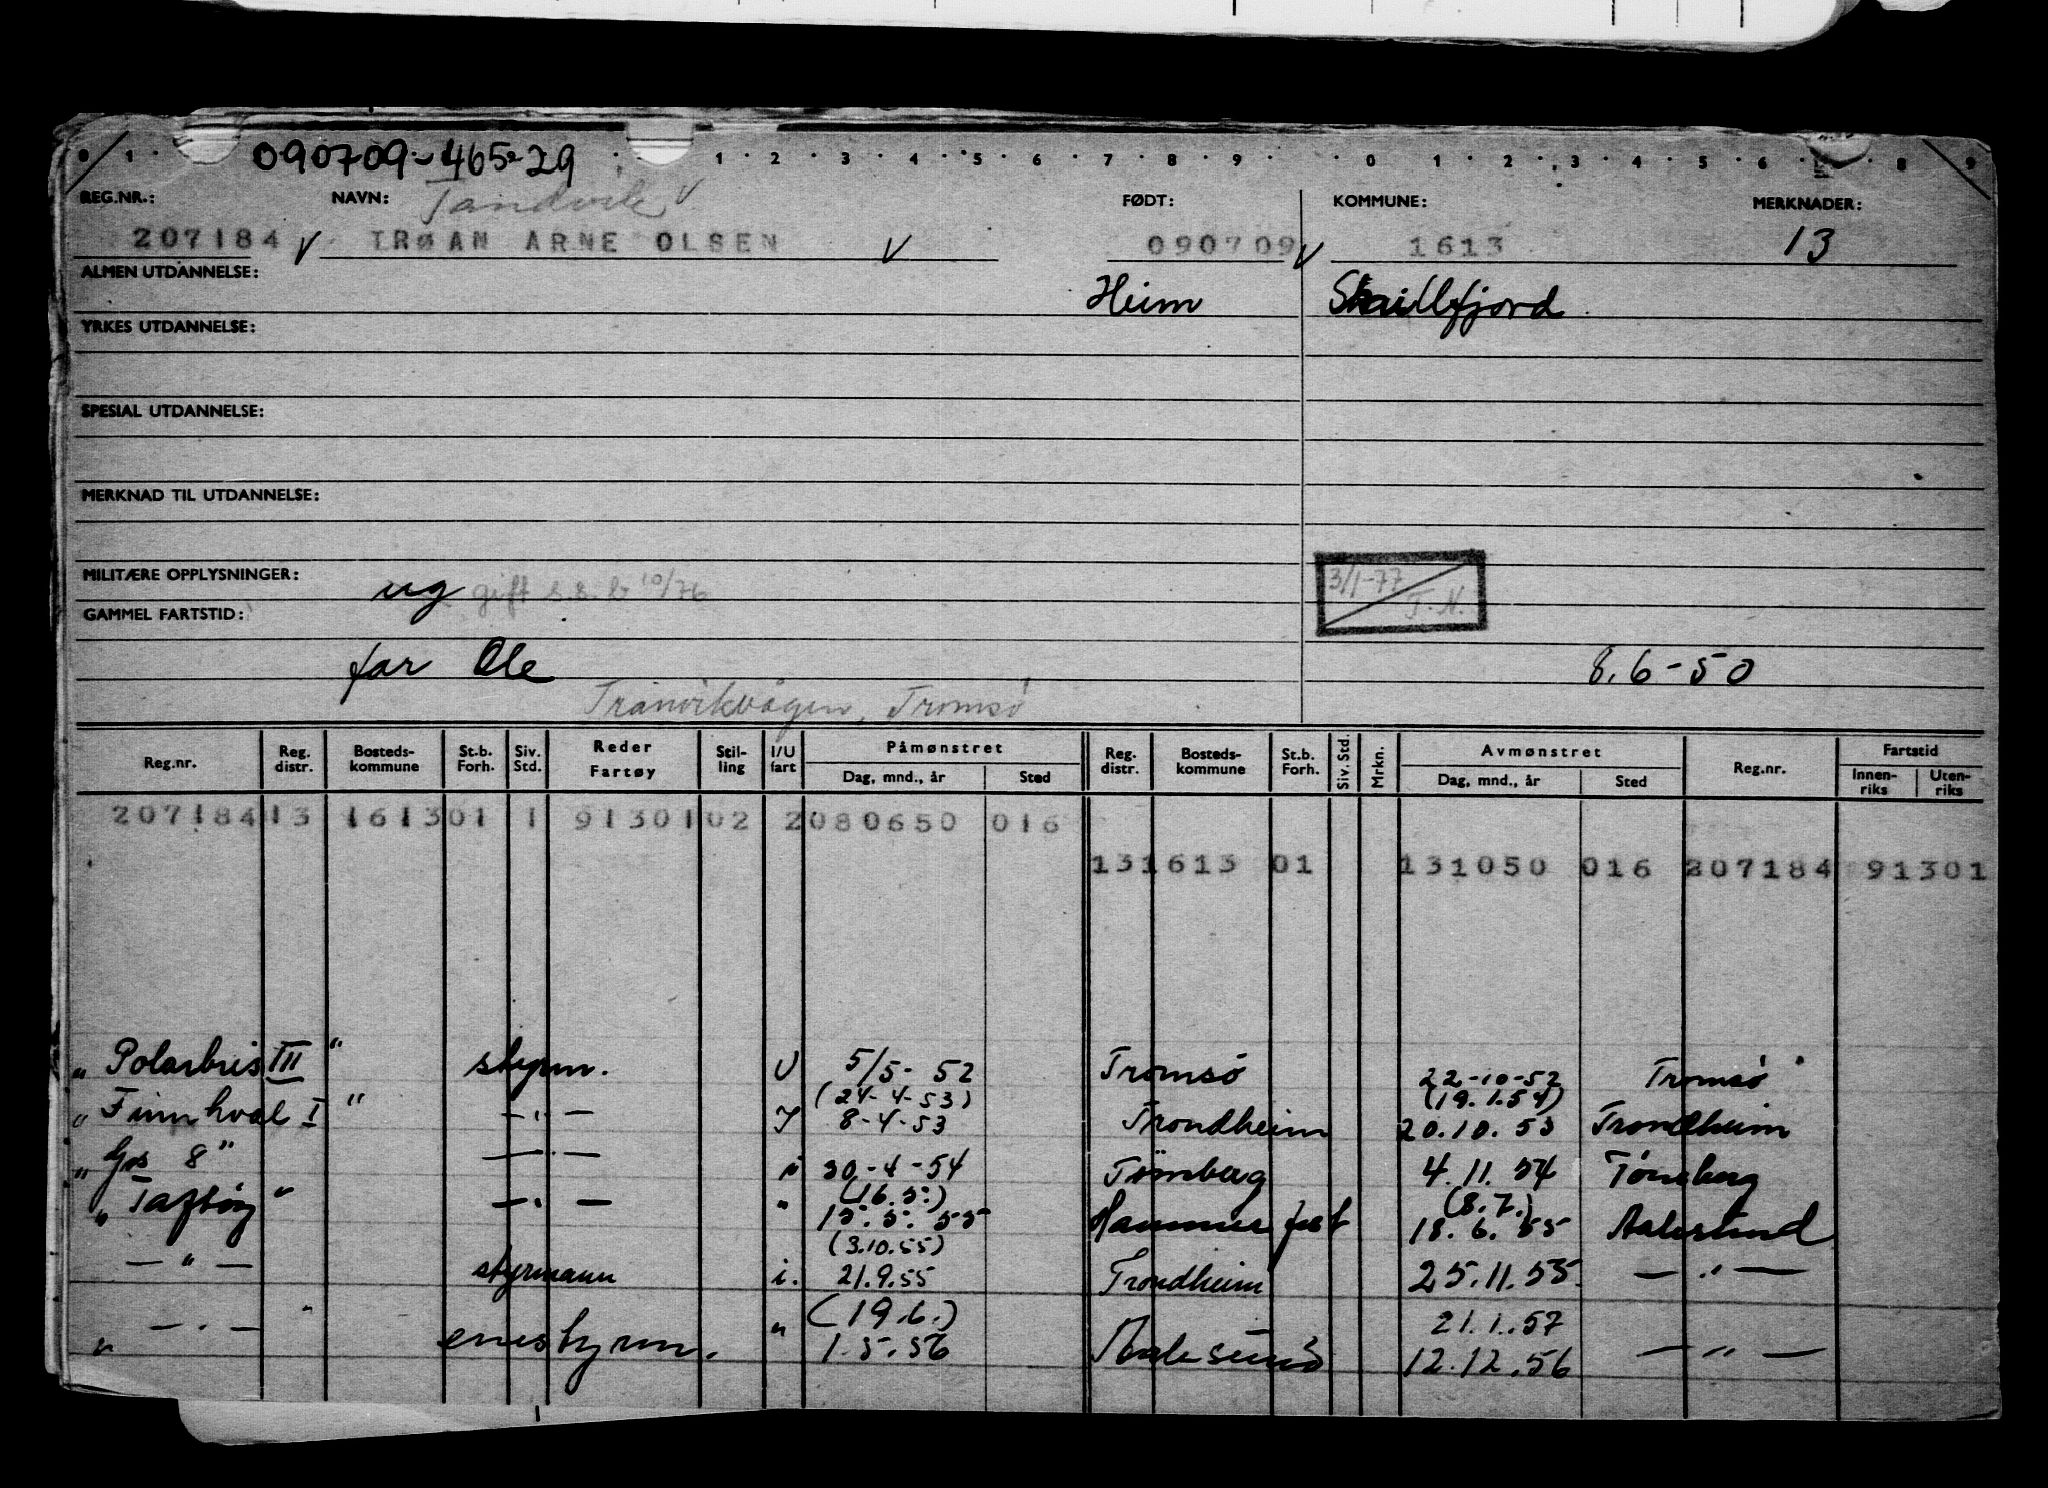 0 1 1 2 3 4 5 6 7 8 9 0 1 2 3 4 5 6 8 9
090709-465-29
REG.NR.: NAVN: Tandvik v FØDT: KOMMUNE: MERKNADER:
207184 v TRØAN ARNE OLSEN v 090709 v 1613 13
ALMEN UTDANNELSE: Heim Snillfjord
YRKES UTDANNELSE:
SPESIAL UTDANNELSE:
MERKNAD TIL UTDANNELSE:
MILITÆRE OPPLYSNINGER: ug gift 10/76 3/1-77 T.N.
GAMMEL FARTSTID:
far Ole 8.6-50
Tranvikvågen, Tromsø
Reg.nr. Reg. distr. Bosteds- kommune St.b. Forh. Siv. Std. Reder Fartøy Stil- ling I/U fart Påmønstret Dag, mnd., år Sted Reg. distr. Bosteds- kommune St.b. Forh. Siv. Std. Mrkn. Avmønstret Dag, mnd., år Sted Reg.nr. Fartstid Innen- riks Uten- riks
207184 13 1613 01 1 91301 02 2 080650 016
13 1613 01 131050 016 207184 91301
" Polarbris III " styrm. U 5/5-52 Tromsø 22-10-52 Tromsø
(24-4-53) (19.1.54)
" Finnhval I " -"- I 8-4-53 Trondheim 20.10.53 Trondheim
" Gos 8 " -"- i 30-4-54 Tønsberg 4.11.54 Tønsberg
(16.5.) (8.7.)
" Tafjord " -"- " 15.5.55 Hammerfest 18.6.55 Aalesund
(3.10.55)
-"- styrmann i. 21.9.55 Trondheim 25.11.55 -"-
(19.6.) 21.1.57
" -"- " enestyrm. " 1.5.56 Aalesund 12.12.56 -"-